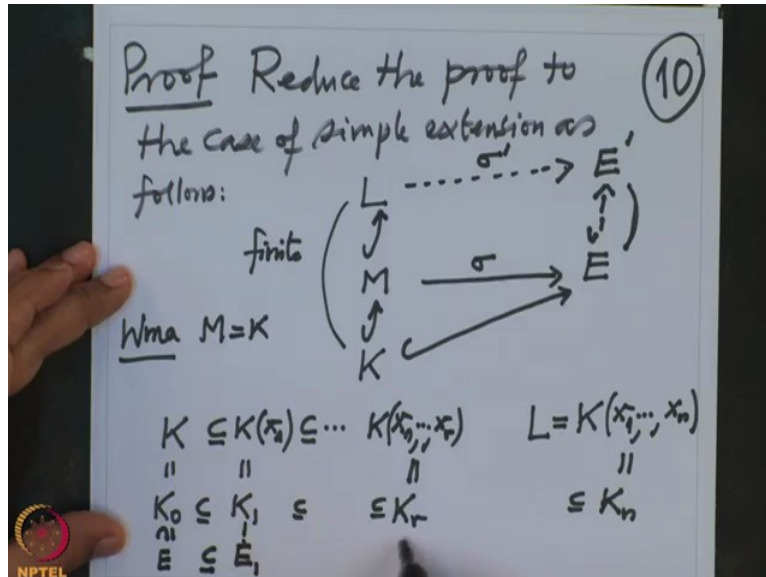 Proof Reduce the proof to (10)
the case of simple extension as
follows:
L --σ'--> E'
finite
M --σ--> E
Wma M=K
K
K ⊆ K(x₁) ⊆ ⋯ K(x₁,⋯,xᵣ) L = K(x₁,⋯,xₙ)
= = = =
K₀ ⊆ K₁ ⊆ ⊆ Kᵣ ⊆ Kₙ
E ⊆ E₁
NPTEL